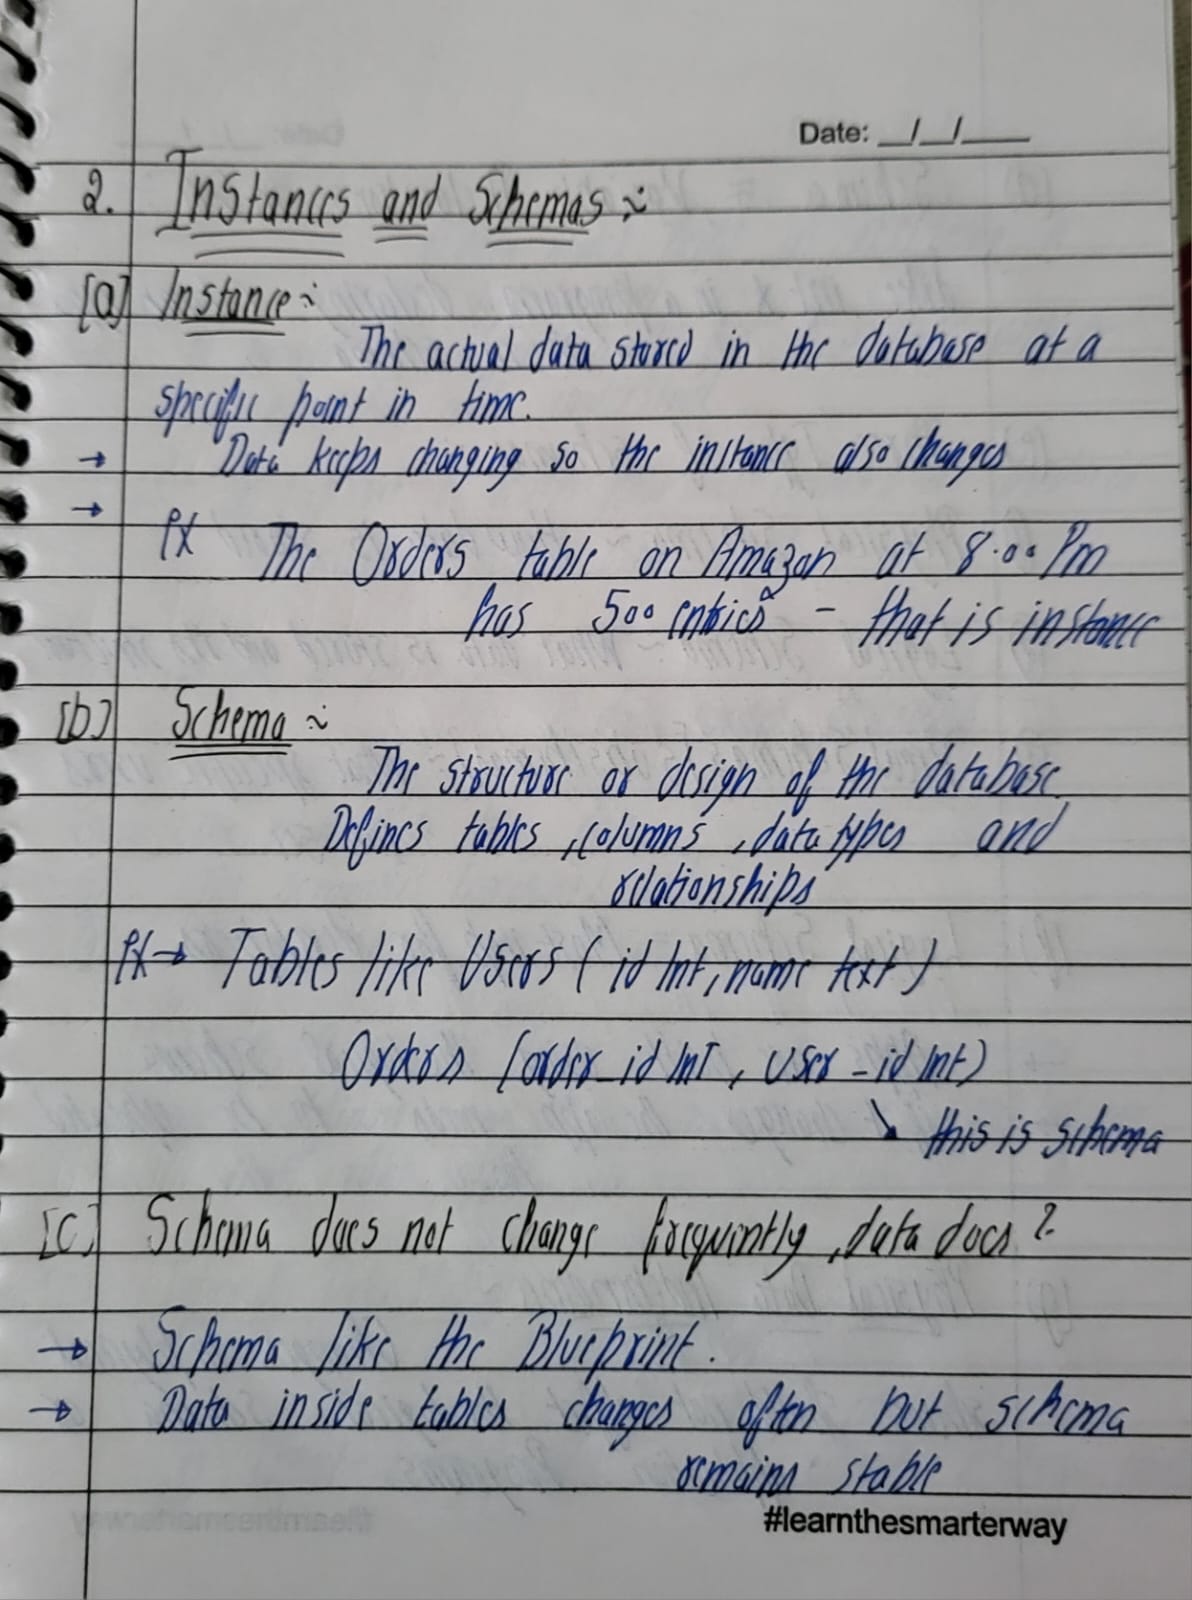 Date: __/__/____
2. Instances and Schemas :-
[a] Instance :-
The actual data stored in the database at a
specific point in time.
→ Data keeps changing so the instance also changes
→
Ex The Orders table on Amazon at 8.00 Pm
has 500 entries - that is instance
[b] Schema :-
The structure or design of the database.
Defines tables, columns, data types and
relationships
Ex → Tables like Users (id Int, name text)
Orders (order_id INT, User_id Int)
↘ this is schema
[c] Schema does not change frequently, data does ?
→ Schema like the Blueprint.
→ Data inside tables changes often but schema
remains stable
#learnthesmarterway